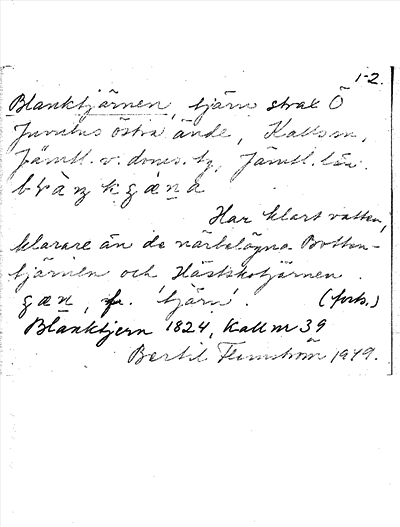 1-2.
Blanktjärnen, tjärn strax Ö
Juvulns östra ände, Kalls sn,
Jämtl. v. doms. tg, Jämtl. län.
Har klart vatten,
klarare än de närbelägna Botten-
tjärnen och Hästskotjärnen.
gæn, f. 'tjärn'. (forts.)
Blanktjern 1824, Kall m 39
Bertil Flemström 1949.